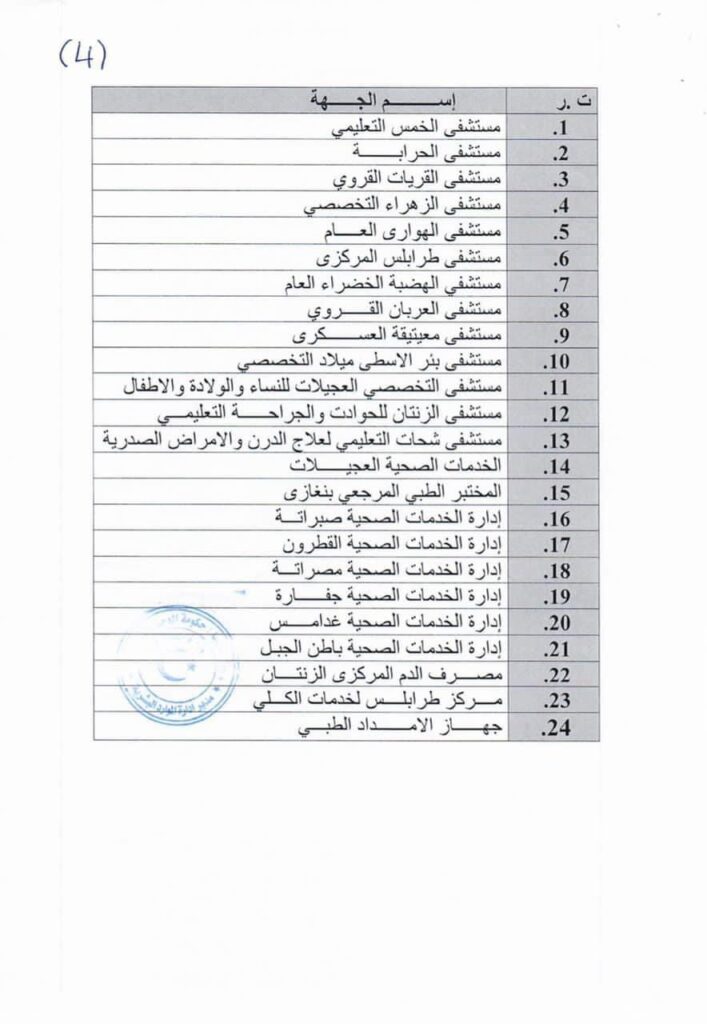 (4)
ت .ر إســـــــم الجـــــهة
1. مستشفى الخمس التعليمي
2. مستشفى الحرابـــــــة
3. مستشفى القريات القروي
4. مستشفى الزهراء التخصصي
5. مستشفى الهوارى العـــــام
6. مستشفى طرابلس المركزى
7. مستشفي الهضبة الخضراء العام
8. مستشفى العربان القـــــروي
9. مستشفى معيتيقة العســـكرى
10. مستشفى بئر الاسطى ميلاد التخصصي
11. مستشفى التخصصي العجيلات للنساء والولادة والاطفال
12. مستشفى الزنتان للحوادت والجراحـــــة التعليمـــي
13. مستشفى شحات التعليمي لعلاج الدرن والامراض الصدرية
14. الخدمات الصحية العجيـــلات
15. المختبر الطبي المرجعي بنغازى
16. إدارة الخدمات الصحية صبراتـــة
17. إدارة الخدمات الصحية القطرون
18. إدارة الخدمات الصحية مصراتـــة
19. إدارة الخدمات الصحية جفـــارة
20. إدارة الخدمات الصحية غدامـــس
21. إدارة الخدمات الصحية باطن الجبـل
22. مصـــرف الدم المركزى الزنتـــان
23. مـــركز طرابلـــس لخدمات الكـــلي
24. جهـــــاز الامـــــداد الطبـــي
حكومة الوحدة
مدير إدارة الموارد البشرية